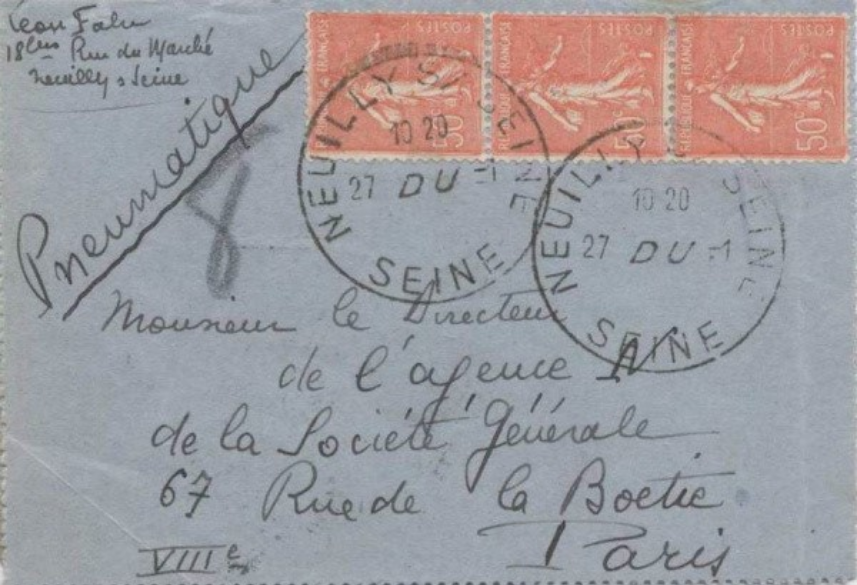 Leon
18 Rue du Marché
Neuilly s Seine
Pneumatique
8
POSTES
RÉPUBLIQUE FRANÇAISE
50c
POSTES
RÉPUBLIQUE FRANÇAISE
50c
POSTES
RÉPUBLIQUE FRANÇAISE
50c
NEUILLY S/ SEINE
10 20
27 DU -1
SEINE
NEUILLY SEINE
10 20
27 DU -1
SEINE
Monsieur le Directeur
de l'agence
de la Société Générale
67 Rue de la Boetie
Paris
VIIIe